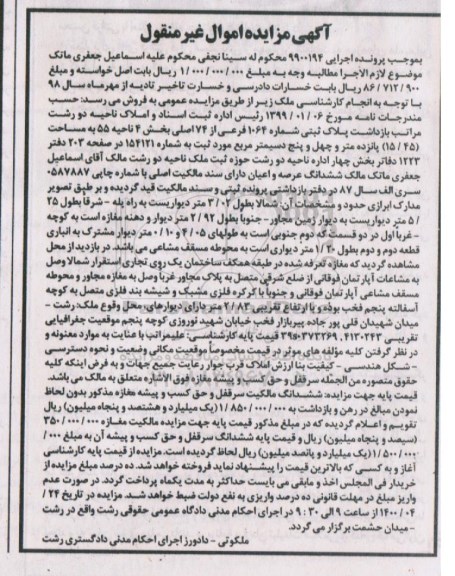 آگهی مزایده اموال غیر منقول
بموجب پرونده اجرایی ۹۹۰۰۱۹۴ محکوم له سینا نجفی محکوم علیه اسماعیل جعفری ماتک
موضوع لازم الاجرا مطالبه وجه به مبلغ ۱/۰۰۰/۰۰۰/۰۰۰ ریال بابت اصل خواسته و مبلغ
۸۶/۷۱۲/۹۰۰ ریال بابت خسارات دادرسی و خسارت تاخیر تادیه از مهرماه سال ۹۸
با توجه به انجام کارشناسی ملک زیر از طریق مزایده عمومی به فروش می رسد: حسب
مندرجات نامه مورخ ۱۳۹۹/۰۱/۰۶ رئیس اداره ثبت اسناد و املاک ناحیه دو رشت
مراتب بازداشت پلاک ثبتی شماره ۱۰۶۴ فرعی از ۷۴ اصلی بخش ۴ ناحیه ۵۵ به مساحت
(۱۵/۴۵) پانزده متر و چهل و پنج دسیمتر مربع مورد ثبت به شماره ۱۵۴۱۲۱ در صفحه ۲۰۳ دفتر
۱۲۲۳ دفاتر بخش چهار اداره ناحیه دو رشت حوزه ثبت ملک ناحیه دو رشت مالک آقای اسماعیل
جعفری ماتک مالک ششدانگ عرصه و اعیان دارای سند مالکیت اصلی با شماره چاپی ۰۵۸۷۸۸۷
سری الف سال ۸۷ در دفتر بازداشتی پرونده ثبتی و سند مالکیت قید گردیده و بر طبق تصویر
مدارک ابرازی حدود و مشخصات آن: شمالا بطول ۳/۰۲ متر دیواریست به راه پله - شرقا بطول ۲۵
/۵ متر دیواریست به دیوار زمین مجاور- جنوبا بطول ۲/۹۲ متر دیوار و دهنه مغازه است به کوچه
- غربا اول در دو قسمت که دوم جنوبی است به طولهای ۴/۰۵ و ۰/۱۰ متر دیوار مشترک به انباری
قطعه دوم و دوم بطول ۱/۳۰ متر دیواری است به محوطه مسقف مشاعی می باشد. در بازدید از محل
مشاهده گردید که مغازه تعرفه شده در طبقه همکف ساختمان یک روی تجاری استقرار شمالا وصل
به مشاعات آپارتمان فوقانی از ضلع شرقی متصل به پلاک مجاور غربا وصل به مغازه مجاور و محوطه
مسقف مشاعی آپارتمان فوقانی و جنوبا با کرکره فلزی مشبک و شیشه بند فلزی متصل به کوچه
آسفالته پنجم فخب بوده و با ارتفاع تقریبی ۲/۸۳ متر دارای دیوارهای. محل وقوع ملک رشت -
میدان شهیدان قلی پور جاده پیربازار فخب خیابان شهید نوروزی کوچه پنجم موقعیت جغرافیایی
تقریبی ۴۱۳۰۲۴۳، ۳۹s۰۳۷۳۲۶۹ قیمت پایه کارشناسی: علیمراتب با عنایت به موارد معنونه و
در نظر گرفتن کلیه مؤلفه های موثر در قیمت مخصوصاً موقعیت مکانی وضعیت و نحوه دسترسی
- شکل هندسی - کیفیت بنا ارزش املاک قرب جوار رعایت جمیع جهات و به فرض اینکه کلیه
حقوق متصوره من الجمله سرقفل و حق کسب و پیشه مغازه فوق الاشاره متعلق به مالک می باشد.
قیمت پایه جهت مزایده: ششدانگ مالکیت سرقفل و حق کسب و پیشه مغازه مذکور بدون لحاظ
نمودن مبالغ در رهن و بازداشت به ۱/۸۵۰/۰۰۰/۰۰۰ (یک میلیارد و هشتصد و پنجاه میلیون) ریال
تقویم و اعلام گردیده که در مبلغ مذکور قیمت پایه جهت مزایده مالکیت مغازه ۳۵۰/۰۰۰/۰۰۰
(سیصد و پنجاه میلیون) ریال و قیمت پایه ششدانگ سرقفل و حق کسب و پیشه آن به مبلغ ۰۰۰/
۱/۵۰۰/۰۰۰ (یک میلیارد و پانصد میلیون) ریال لحاظ گردیده است. مزایده از قیمت پایه کارشناسی
آغاز و به کسی که بالاترین قیمت را پیشنهاد نماید فروخته خواهد شد. ده درصد مبلغ مزایده از
خریدار فی المجلس اخذ و مابقی می بایست حداکثر به مدت یکماه پرداخت گردد. در صورت عدم
واریز مبلغ در مهلت قانونی ده درصد واریزی به نفع دولت ضبط خواهد شد. مزایده در تاریخ ۲۴/
۱۴۰۰/۰۴ از ساعت ۹ الی ۹:۳۰ در اجرای احکام مدنی دادگاه عمومی حقوقی رشت واقع در رشت
- میدان حشمت برگزار می گردد.
ملکوتی - دادورز اجرای احکام مدنی دادگستری رشت